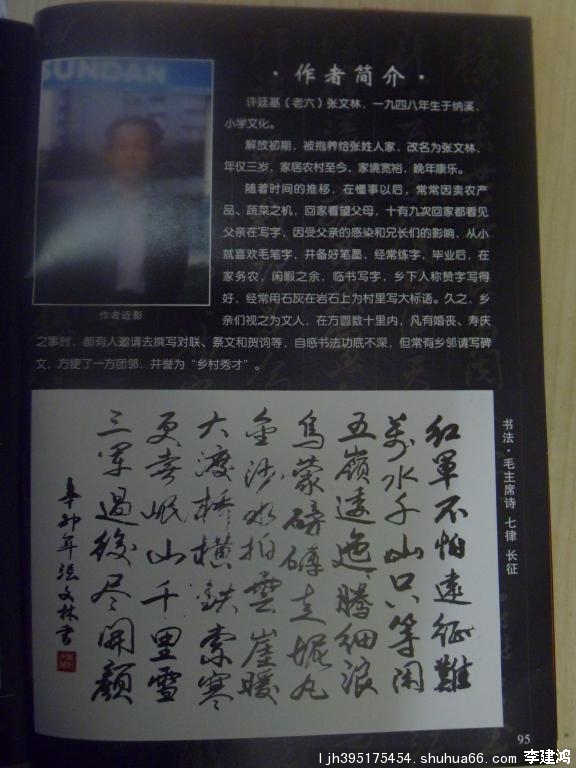 SUNDAN
·作者简介·
许廷基(老六)张文林,一九四八年生于纳溪,
小学文化。
解放初期,被抱养给张姓人家,改名为张文林,
年仅三岁,家居农村至今,家境宽裕,晚年康乐。
随着时间的推移,在懂事以后,常常因卖农产
品、蔬菜之机,回家看望父母,十有九次回家都看见
父亲在写字,因受父亲的感染和兄长们的影响,从小
就喜欢毛笔字,并备好笔墨,经常练字,毕业后,在
家务农,闲暇之余,临书写字,乡下人称赞字写得
好,经常用石灰在岩石上为村里写大标语。久之,乡
亲们视之为文人,在方圆数十里内,凡有婚丧、寿庆
之事时,都有人邀请去撰写对联、祭文和贺词等,自感书法功底不深,但常有乡邻请写碑
文,方便了一方团邻,并誉为“乡村秀才”。
作者近影
书法·毛主席诗 七律 长征
红军不怕远征难
万水千山只等闲
五岭逶迤腾细浪
乌蒙磅礴走泥丸
金沙水拍云崖暖
大渡桥横铁索寒
更喜岷山千里雪
三军过后尽开颜
辛卯年张文林书
95
ljh395175454.shuhua66.com 李建鸿